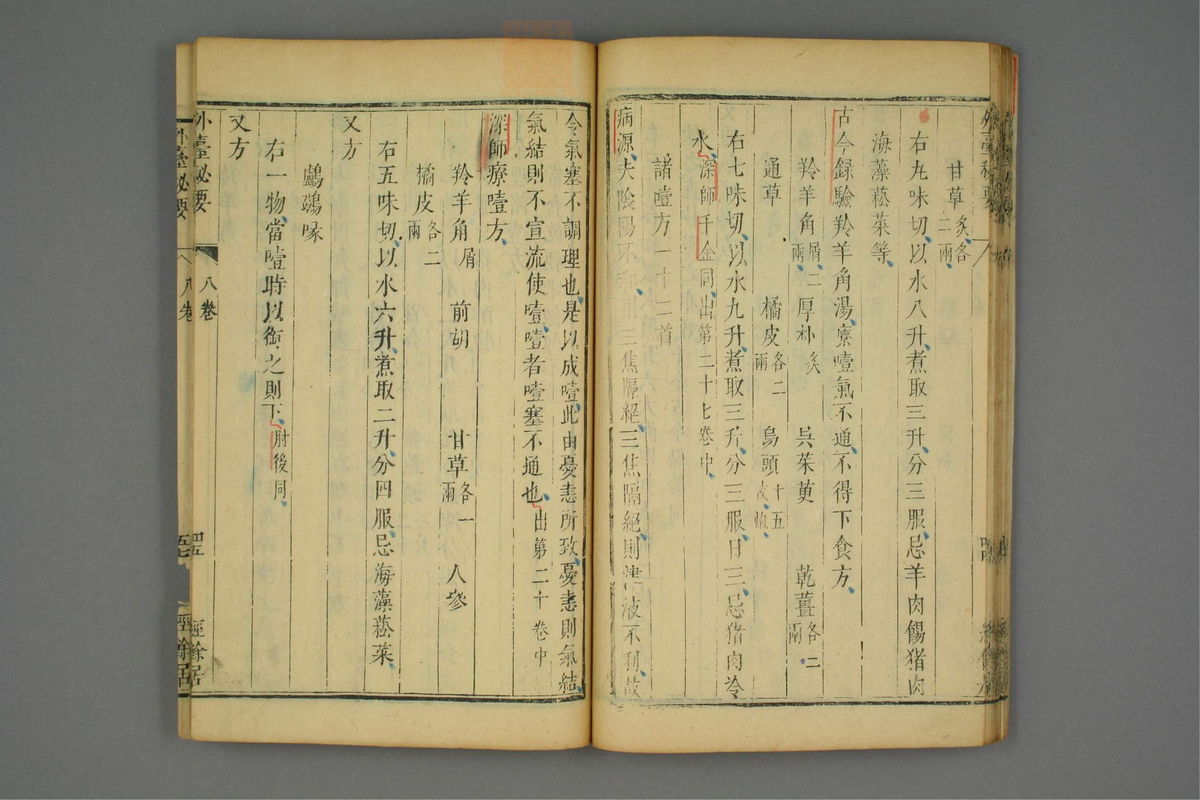 甘草炙各二兩
右九味切以水八升煮取三升分三服忌羊肉餳猪肉
海藻菘菜等
古今録驗羚羊角湯療噎氣不通不得下食方
羚羊角屑二兩 厚朴炙 呉茱萸 乾薑各二兩
通草 橘皮各二兩 烏頭十五枚炮
右七味切以水九升煮取三升分三服日三忌猪肉冷
水深師千金同出第二十七卷中
諸噎方一十二首
病源夫陰陽不 三焦隔絕三焦隔絕則津液不利故
令氣塞不調理也是以成噎此由憂恚所致憂恚則氣結
氣結則不宣流使噎噎者噎塞不通也出第二十卷中
深師療噎方
羚羊角屑 前胡 甘草各一兩 人參
橘皮各二兩
右五味切以水六升煮取二升分四服忌海藻菘菜
又方
鸕鷀喙
右一物當噎時以銜之則下肘後同
又方
外臺秘要 八卷 經餘居
外臺秘要 八卷 經餘居